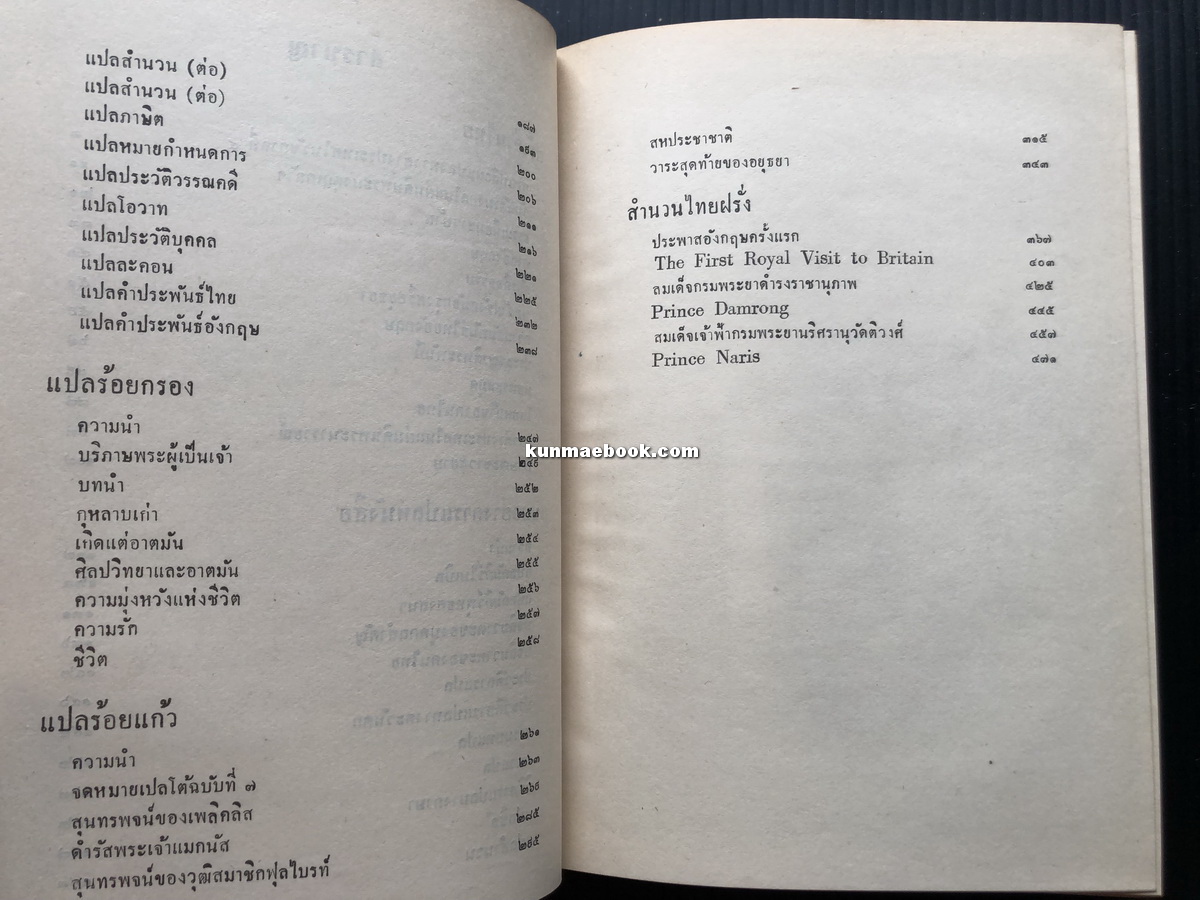 แปลสำนวน (ต่อ) ๑๘๗
แปลสำนวน (ต่อ) ๑๙๓
แปลภาษิต ๒๐๐
แปลหมายกำหนดการ ๒๐๖
แปลประวัติวรรณคดี ๒๑๑
แปลโอวาท ๒๑๖
แปลประวัติบุคคล ๒๒๑
แปลละคอน ๒๒๕
แปลคำประพันธ์ไทย ๒๓๒
แปลคำประพันธ์อังกฤษ ๒๓๘
แปลร้อยกรอง
ความนำ ๒๔๗
บริภาษพระผู้เป็นเจ้า ๒๔๙
บทนำ ๒๕๒
กุหลาบเก่า ๒๕๓
เกิดแต่อาตมัน ๒๕๔
ศิลปวิทยาและอาตมัน ๒๕๕
ความมุ่งหวังแห่งชีวิต ๒๕๖
ความรัก ๒๕๗
ชีวิต ๒๕๘
แปลร้อยแก้ว
ความนำ ๒๖๑
จดหมายเปลโต้ฉบับที่ ๗ ๒๖๓
สุนทรพจน์ของเพลิคลิส ๒๖๙
ดำรัสพระเจ้าแมกนัส ๒๘๕
สุนทรพจน์ของวุฒิสมาชิกฟุลไบรท์ ๒๙๕
สหประชาชาติ ๓๑๕
วาระสุดท้ายของอยุธยา ๓๔๓
สำนวนไทยฝรั่ง
ประพาสอังกฤษครั้งแรก ๓๖๗
The First Royal Visit to Britain ๔๐๓
สมเด็จกรมพระยาดำรงราชานุภาพ ๔๒๕
Prince Damrong ๔๔๕
สมเด็จเจ้าฟ้ากรมพระยานริศรานุวัดติวงศ์ ๔๕๗
Prince Naris ๔๗๑
kunmaebook.com